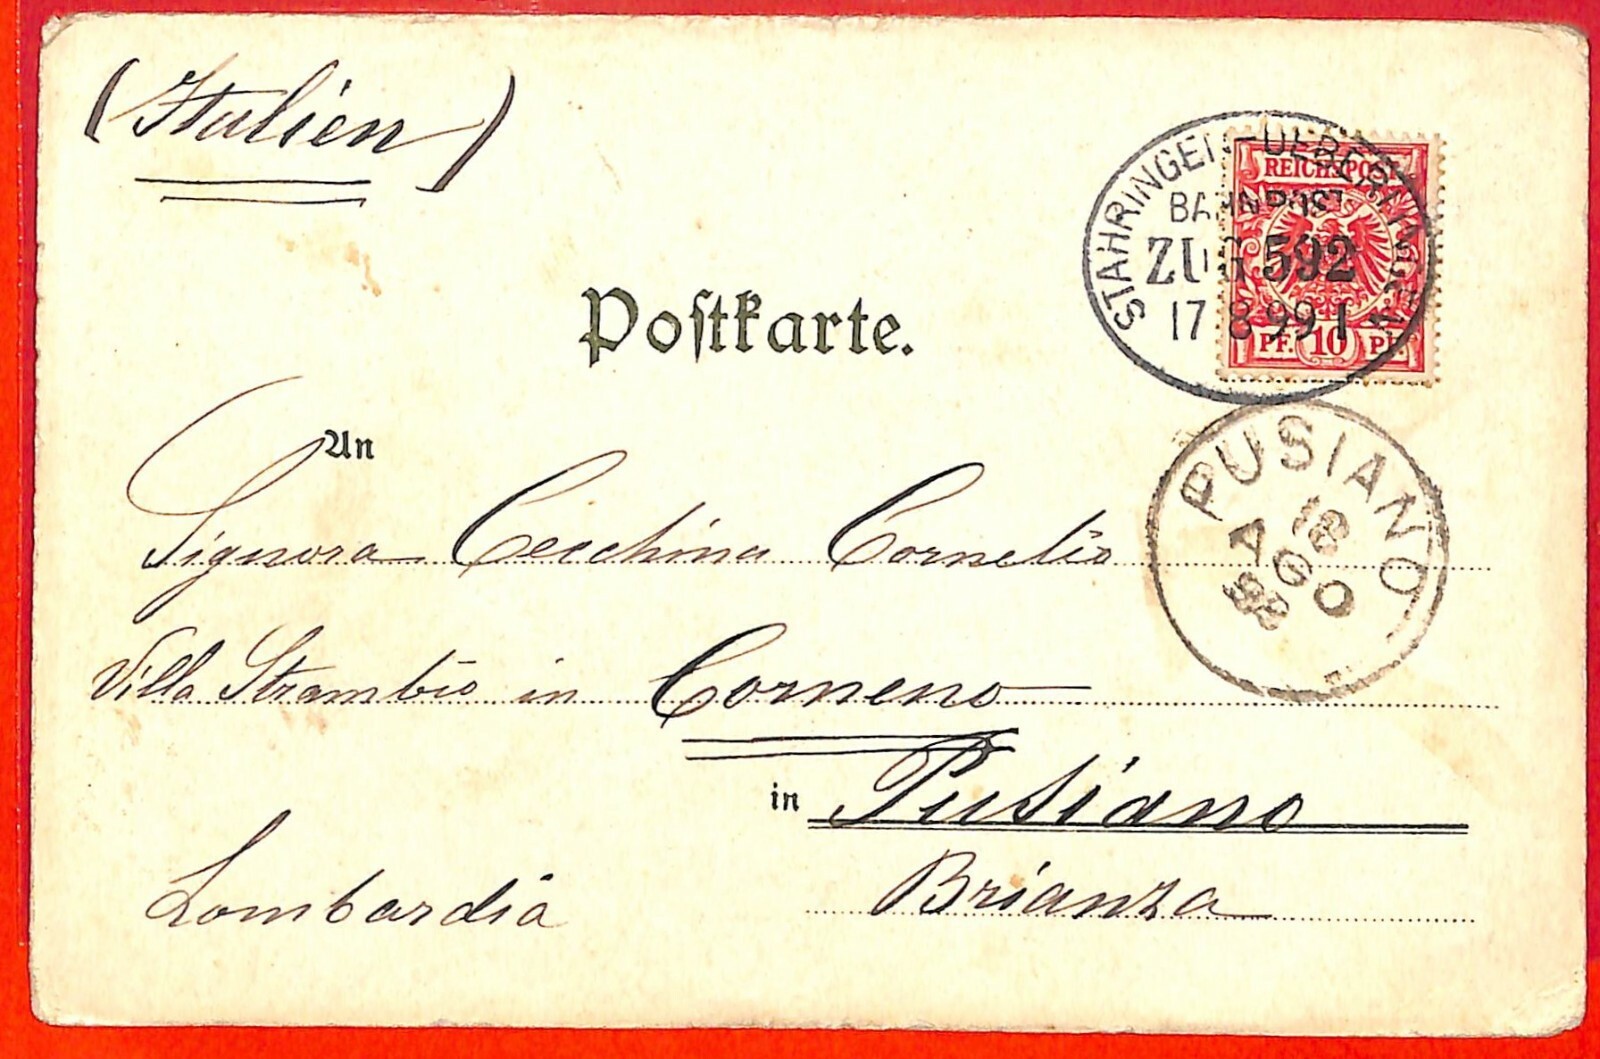 (Italien)
STAHRINGEN-UEBERLINGEN
BAHNPOST
ZUG 592
17 8 99 I
REICHSPOST
PF. 10 PF.
Postkarte.
PUSIANO
18
AGO
99
An
Signora Cecchina Cornelio
Villa Strambio in Corneno
in Pusiano
Lombardia Brianza